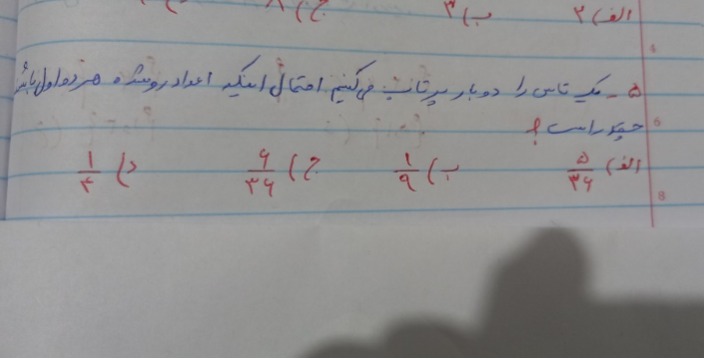 الف) ۲ ب) ۳ ج) ۸
۵ - یک تاس را دو بار پرتاب می‌کنیم احتمال اینکه اعداد رو شده هر دو اول باشد
چقدر است؟
الف) ۵/۳۶ ب) ۱/۹ ج) ۶/۳۶ د) ۱/۴
6
8